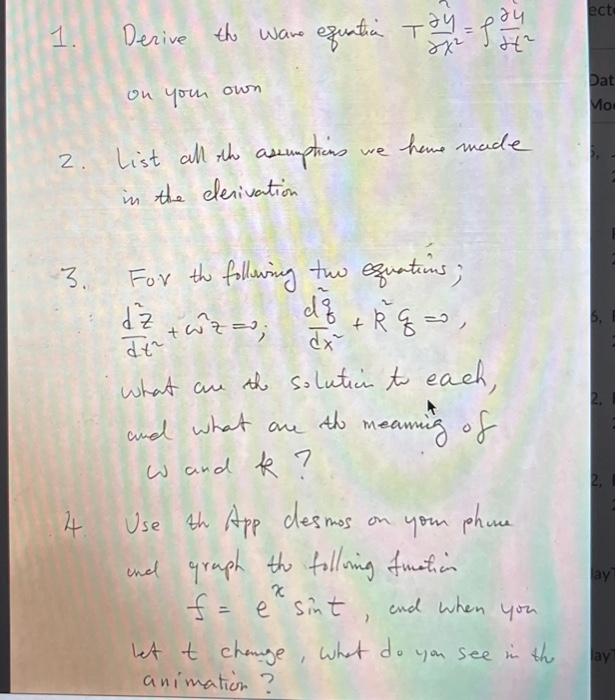 1. Derive the wave equation T ∂²y/∂x² = ρ ∂²y/∂t²
on your own
2. List all the assumptions we have made
in the derivation
3. For the following two equations;
d²z/dt² + ω²z = 0; d²g/dx² + k²g = 0,
what are the solution to each,
and what are the meaning of
ω and k ?
4. Use the App desmos on your phone
and graph the following function
f = eˣ sin t, and when you
let t change, what do you see in the
animation ?
ect
Dat
Mo
5,
6,
2,
2,
lay
lay